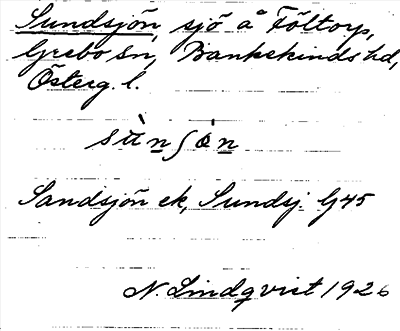 Sundsjön, sjö åFöltorp,
Grebo sn, Bankekinds hd,
Österg. l.
sùnʃön
Sandsjön ek, Sundsj. G45
N. Lindqvist 1926